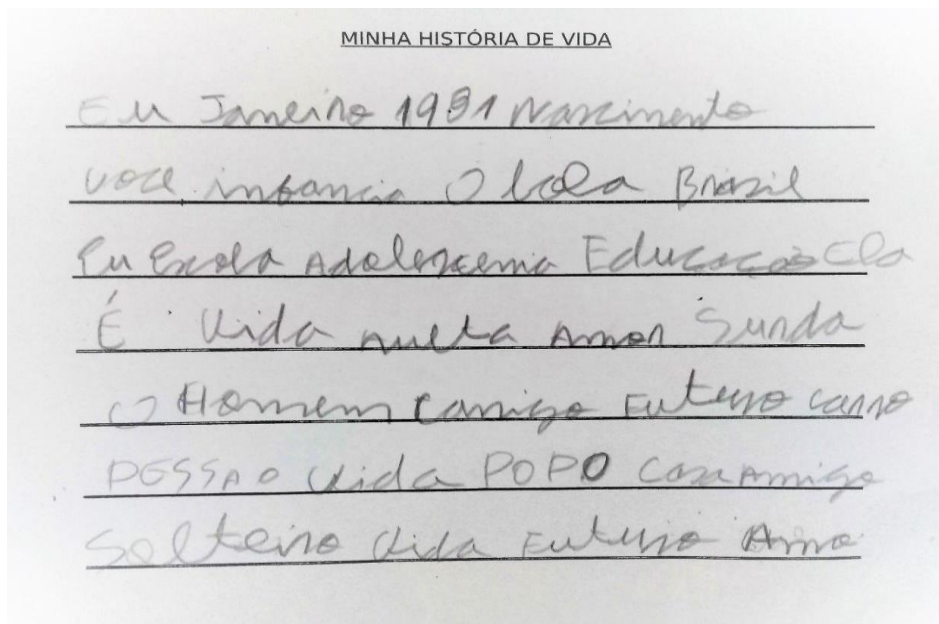 MINHA HISTÓRIA DE VIDA
Eu Janeiro 1991 Nascimento
voce infancia O bola Brasil
Eu Escola Adolescemia Educação Ela
É Vida Amor Surda
O Homem Camigo Futuro carro
PESSAO Vida POPO Casa Amigo
Solteiro Vida Futuro Amo